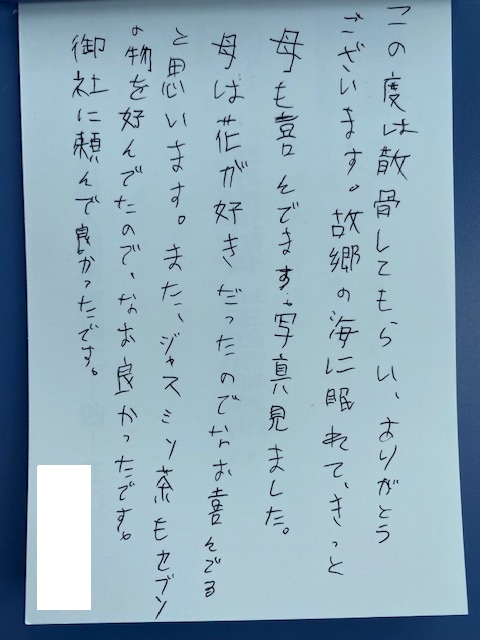 この度は散骨してもらい、ありがとう
ございます。故郷の海に眠れて、きっと
母も喜んでます。写真見ました。
母は花が好きだったのでなお喜んでる
と思います。また、ジャスミン茶もセブン
の物を好んでたので、なお良かったです。
御社に頼んで良かったです。